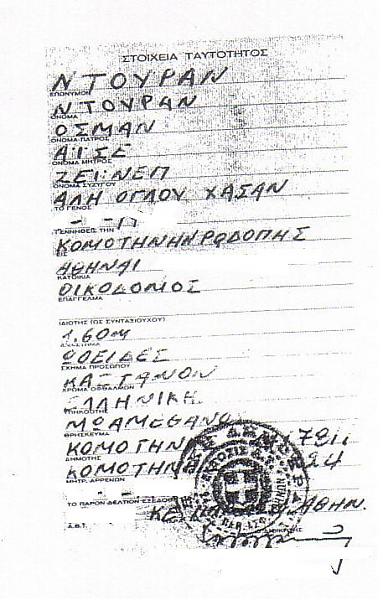 ΣΤΟΙΧΕΙΑ ΤΑΥΤΟΤΗΤΟΣ
ΝΤΟΥΡΑΝ
ΕΠΩΝΥΜΟΝ
ΝΤΟΥΡΑΝ
ΟΝΟΜΑ
ΟΣΜΑΝ
ΟΝΟΜΑ ΠΑΤΡΟΣ
ΑΪΣΕ
ΟΝΟΜΑ ΜΗΤΡΟΣ
ΖΕΪΝΕΠ
ΟΝΟΜΑ ΣΥΖΥΓΟΥ
ΑΛΗ ΟΓΛΟΥ ΧΑΣΑΝ
ΤΟ ΓΕΝΟΣ
ΓΕΝΝΗΘΕΙΣ ΤΗΝ
ΚΟΜΟΤΗΝΗΝ ΡΟΔΟΠΗΣ
ΕΙΣ
ΑΘΗΝΑΙ
ΚΑΤΟΙΚΙΑ
ΟΙΚΟΔΟΜΟΣ
ΕΠΑΓΓΕΛΜΑ
ΙΔΙΟΤΗΣ (ΩΣ ΣΥΝΤΑΞΙΟΥΧΟΥ)
1.60Μ
ΩΟΕΙΔΕΣ
ΣΧΗΜΑ ΠΡΟΣΩΠΟΥ
ΚΑΣΤΑΝΟΝ
ΧΡΩΜΑ ΟΦΘΑΛΜΩΝ
ΕΛΛΗΝΙΚΗ
ΜΩΑΜΕΘΑΝΟ
ΘΡΗΣΚΕΥΜΑ
ΚΟΜΟΤΗΝ
ΔΗΜΟΤΗΣ
ΚΟΜΟΤΗΝ
ΜΗΤΡ. ΑΡΡΕΝΩΝ
ΤΟ ΠΑΡΟΝ ΔΕΛΤΙΟΝ ΕΞΕΔΟΘΗ
ΑΘΗΝ.
Α.Β.Τ.